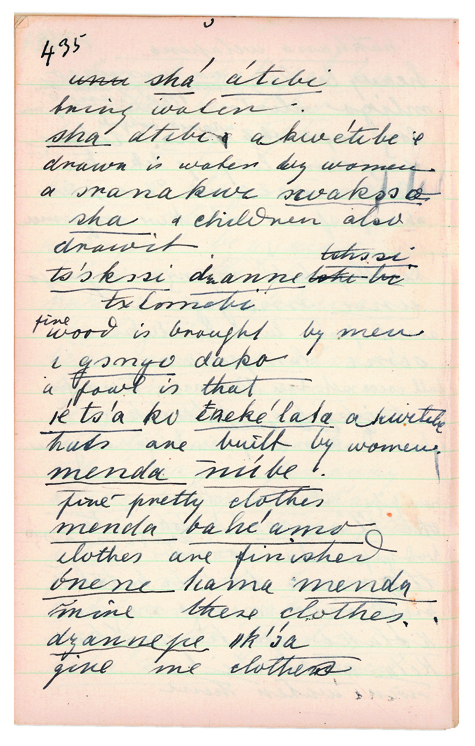 435
unu shá átibi
bring water.
sha átibi akwétibe
drawn is water by women
a sranakwe xwaksa
sha & children also
draw it
tutssi
ts'skssi dzanne tshi bi
txlomobi
fire wood is brought by men
i gsngo dako
a fowl is that
ié ts'a ko tseké lata akwitibe
huts are built by women
menda nübe.
fine pretty clothes
menda bahé amo
clothes are finished
ónene hama menda
mine these clothes.
dzannepe ǁk'ŝa
give me clothes